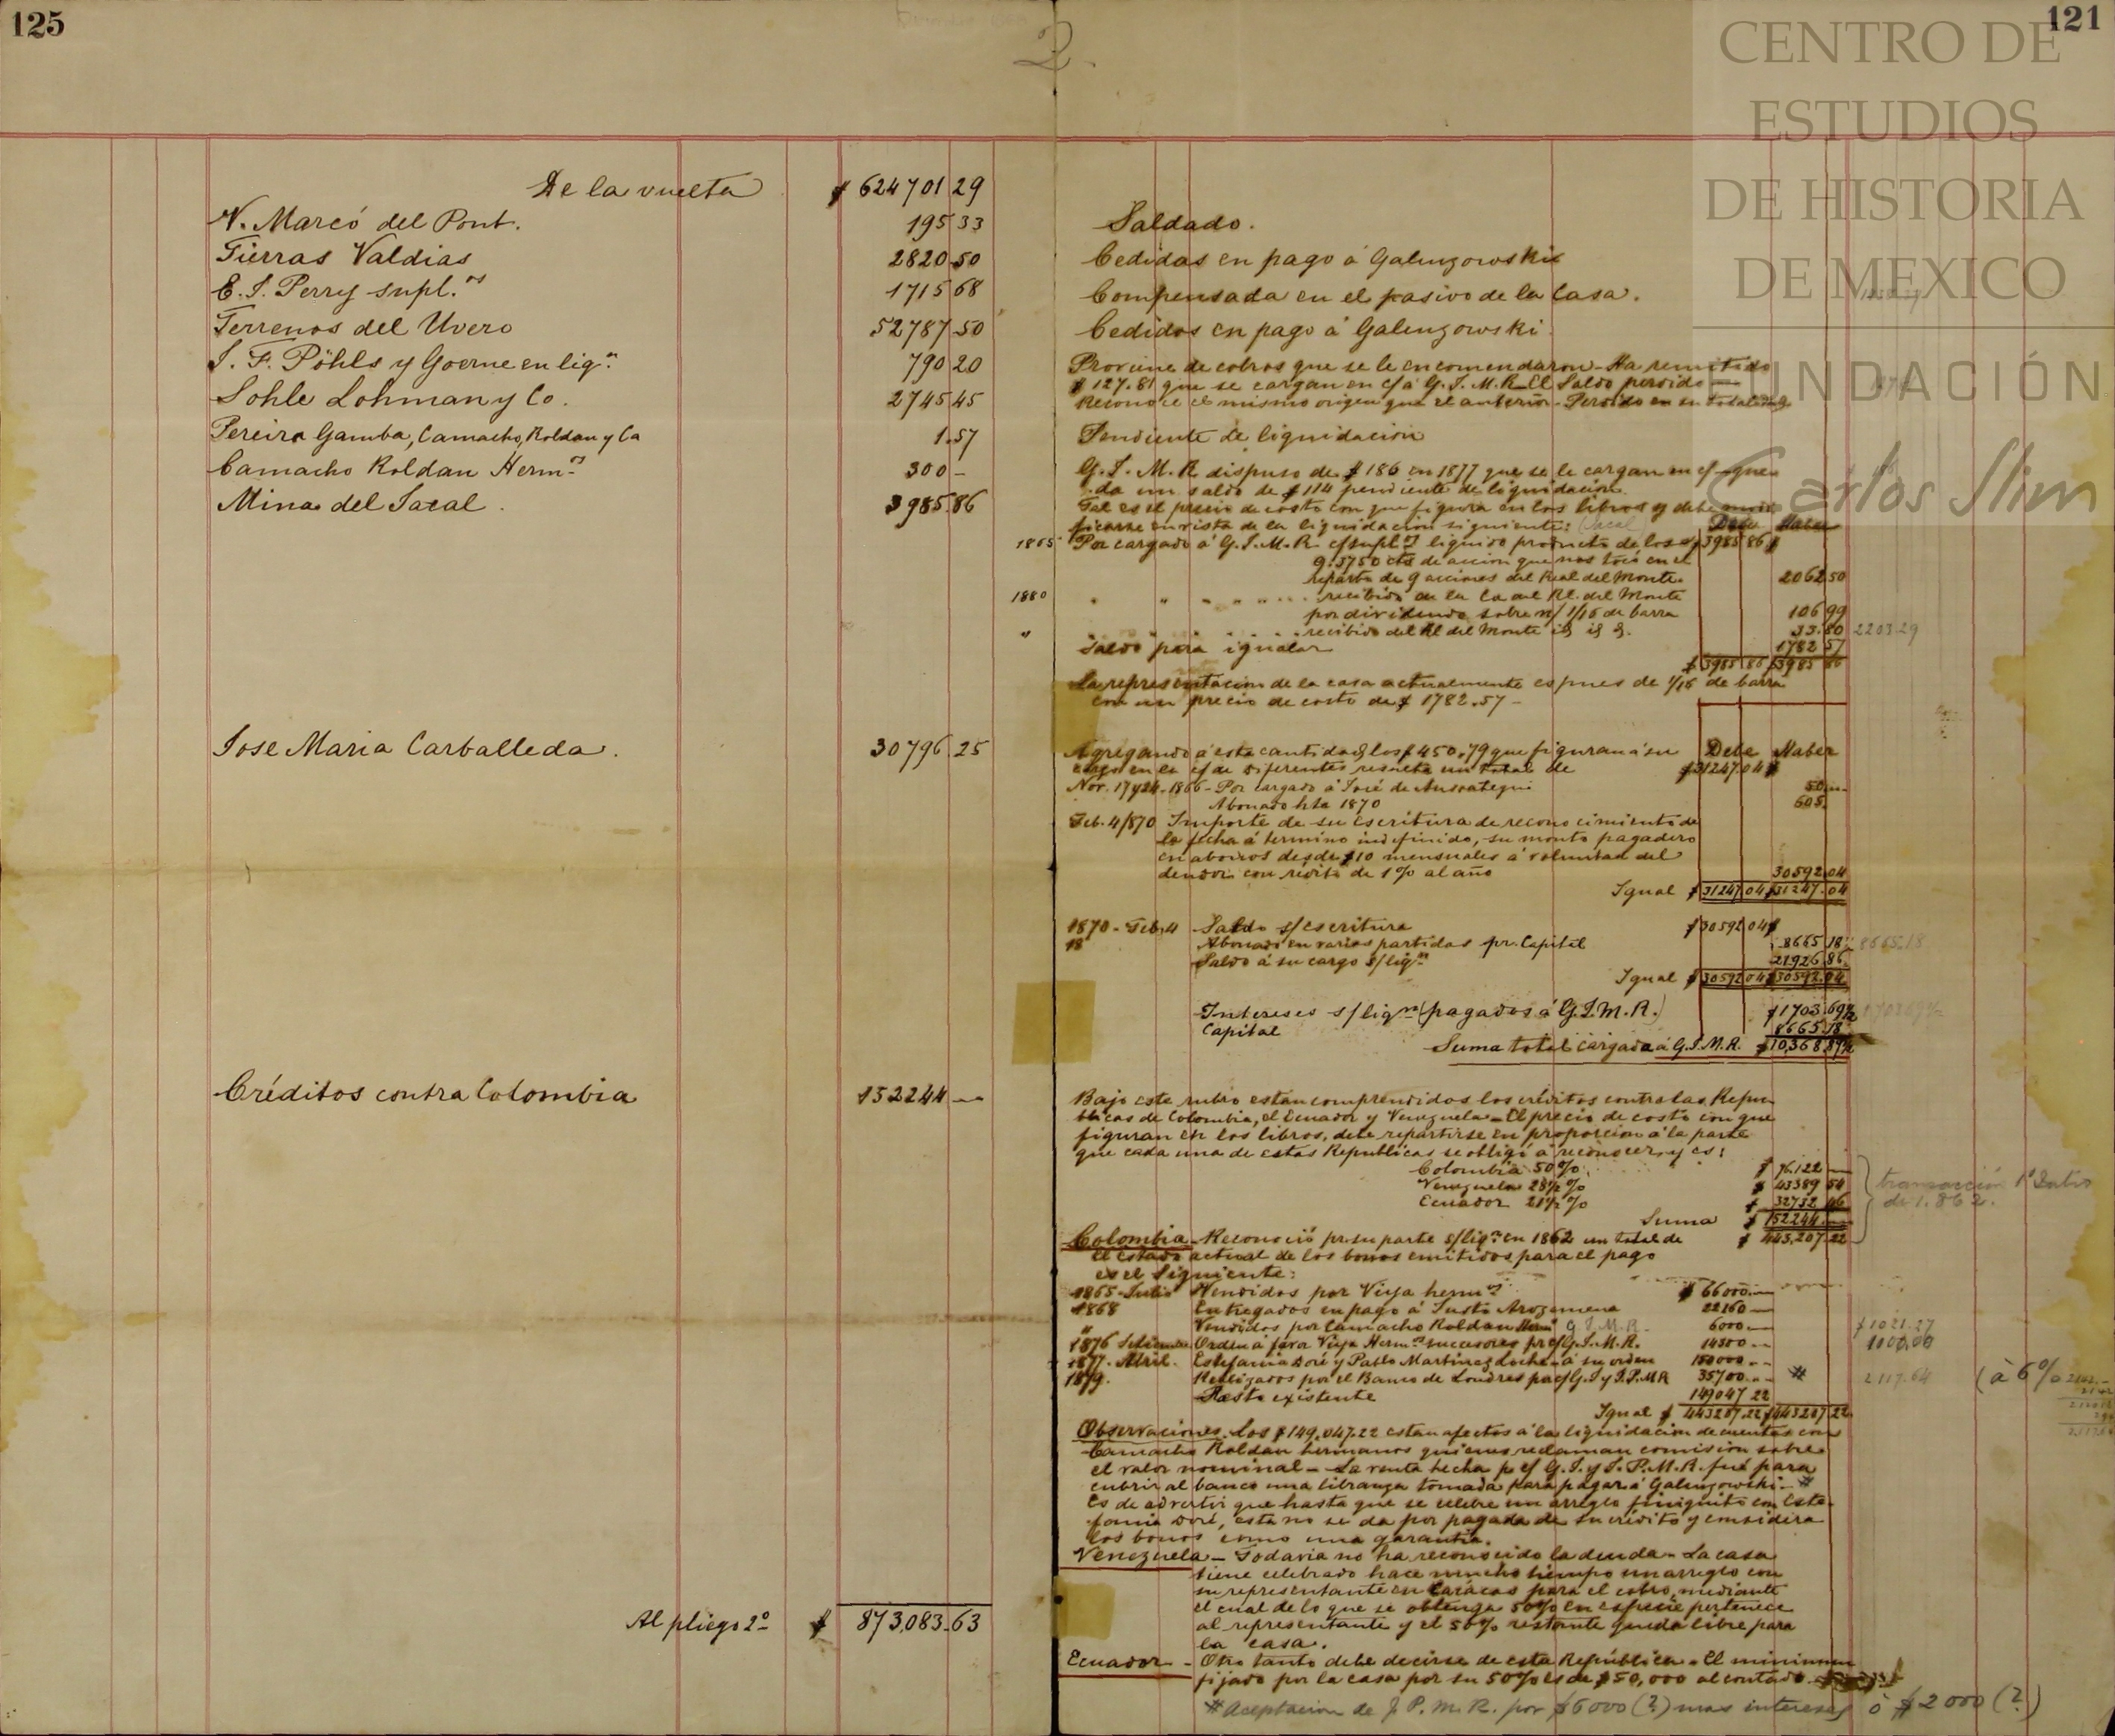 125
2
121
CENTRO DE
ESTUDIOS
DE HISTORIA
DE MEXICO
FUNDACIÓN
Carlos Slim
De la vuelta $ 624701 29
N. Marcó del Pont. 195 33
Tierras Valdias 2820 50
E. J. Perry supl.os 1715 68
Terrenos del Uvero 52787 50
J. F. Pöhls y Goerne en lig.n 790 20
Sohle Lohman y Co. 2745 45
Pereira Gamba, Camacho, Roldan y Ca 1.57
Camacho Roldan Herm.os 300 -
Mina del Jacal. 3985.86
Jose Maria Carballeda. 30796.25
Créditos contra Colombia 152244 —
Al pliego 2º $ 873,083.63
Saldado.
Cedidas en pago á Galenzowski
Compensada en el pasivo de la Casa.
Cedidos en pago á Galenzowski
Proviene de cobros que se le encomendaron - Ha remitido
$ 127.81 que se cargan en c/ á G. J. M. R. El Saldo perdido —
Reconoce el mismo origen que el anterior - Perdido en su totalidad
Pendiente de liquidación
G. J. M. R dispuso de $ 186 en 1877 que se le cargan en c/ - que
da un saldo de $ 114 pendiente de liquidación.
Tal es el precio de costo con que figura en los libros y debe modi
ficarse en vista de la liquidación siguiente: (Jacal) Debe Haber
1865 Por cargado á G. J. M. R. c/ supl.s liquido producto de los $ 3985 86 $
9.3750 cts de accion que nos tocó en el
reparto de 9 acciones del Real del Monte. 2062 50
1880 " " " recibido de la Ca del Rl. del Monte
por dividendo sobre n/ 1/16 de barra 106 99
" " " recibido del Rl del Monte id id d. 33.80 2203.29
Saldo para igualar 1782 57
$ 3985 86 $ 3985 86
La representacion de la casa actualmente es pues de 1/16 de barra
con un precio de costo de $ 1782.57 -
Agregando á esta cantidad los $ 450.79 que figuran á su Debe Haber
cargo en la c/ de Diferentes resulta un total de $ 31247.04 $
Nov. 17 y 24 - 1866 - Por cargado á José de Ansoategui 50 —
Abonado hta 1870 605
Feb. 4/870 Importe de su escritura de reconocimiento de
la fecha á termino indefinido, su monto pagadero
en abonos desde $10 mensuales á voluntad del
deudor con rédito de 1% al año 30592.04
Igual $ 31247 04 $ 31247.04
1870 - Feb. 4 Saldo s/ escritura $ 30592 04 $
18 Abonado en varias partidas pr. Capital 8665 18 8665.18
Saldo á su cargo s/ lig.n 21926 86
Igual $ 30592 04 $ 30592.04
Intereses s/ lig.n (pagados á G. J. M. R.) $ 1703.69 1/2 1703.69 1/2
Capital 8665.18
Suma total cargada á G. J. M. R. $ 10,368.87 1/2
Bajo este rubro estan comprendidos los créditos contra las Repu-
blicas de Colombia, el Ecuador y Venezuela - El precio de costo con que
figuran en los libros, debe repartirse en proporcion á la parte
que cada una de estas Republicas se obligó á reconocer, y es:
Colombia 50% $ 76.122 —
Venezuela 28 1/2 % $ 43389 54
Ecuador 21 1/2 % $ 32732 46
Suma $ 152244. —
transacción 1º Julio
de 1.862.
Colombia - Reconoció pr. su parte s/ lig.n en 1862 un total de $ 443,207.22
El Estado actual de los bonos emitidos para el pago
es el siguiente:
1865 - Julio Vendidos por Viya herm.os $ 66000. —
1868 Entregados en pago á Justo Arozemena 22160 —
" Vendidos por Camacho Roldan Herm.s G. J. M. R. 6000 — $ 1021.27
1876 Setiembre Orden á favor Viya Herm.os sucesores pr c/ G. J. M. R. 14300 — 1000,00
1877. Abril. Estefania Doré y Pablo Martinez Loche - á su orden 150000 —
1879. Realizados por el Banco de Londres pr c/ G. J y J. P. M R 35700 — # 2117.64 (á 6%
Resto existente 149047 22
Igual $ 443207.22 $ 443207 22
Observaciones. Los $ 149.047.22 estan afectos á la liquidacion de cuentas con
Camacho Roldan hermanos quienes reclaman comision sobre
el valor nominal - La venta hecha p c/ G. J. y J. P. M. R. fué para
cubrir al banco una libranza tomada para pagar á Galenzowski - #
Es de advertir que hasta que se celebre un arreglo finiquito con Este-
fania Doré, esta no se da por pagada de su crédito y considera
los bonos como una garantia.
Venezuela - Todavia no ha reconocido la deuda - La casa
tiene celebrado hace mucho tiempo un arreglo con
su representante en Carácas para el cobro, mediante
el cual de lo que se obtenga 50% en especie pertenece
al representante y el 50% restante queda libre para
la casa.
Ecuador - Otro tanto debe decirse de esta República. El minimum
fijado por la casa por su 50% es de $ 50,000 al contado
# Aceptacion de J. P. M. R. por $6000 (?) mas intereses ó $ 2000 (?)